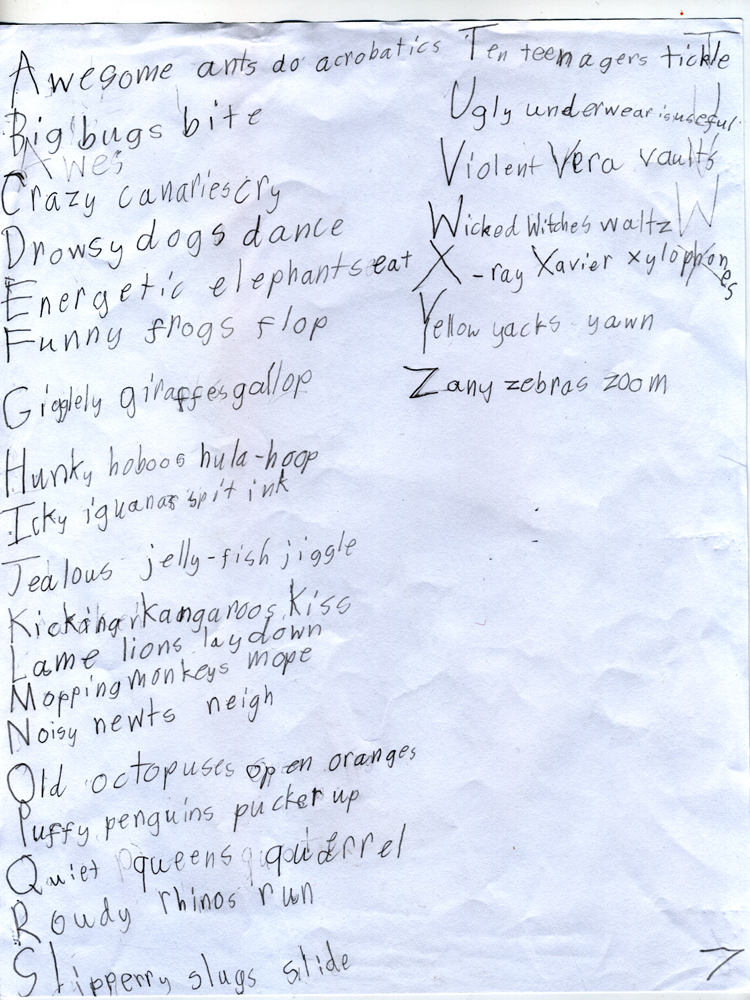 Awesome ants do acrobatics
Big bugs bite
Awes
Crazy canaries cry
Drowsy dogs dance
Energetic elephants eat
Funny frogs flop
Gigglely giraffes gallop
Hunky hoboos hula-hoop
Icky iguanas spit ink
Jealous jelly-fish jiggle
Kicking kangaroos kiss
Lame lions lay down
Mopping monkeys mope
Noisy newts neigh
Old octopuses open oranges
Puffy penguins pucker up
Quiet queens quarrel
Roudy rhinos run
Slipperry slugs slide
Ten teenagers tickle
Ugly underwear is useful
Violent Vera vaults
Wicked Witches waltz W
X-ray Xavier xylophones
Yellow yacks yawn
Zany zebras zoom